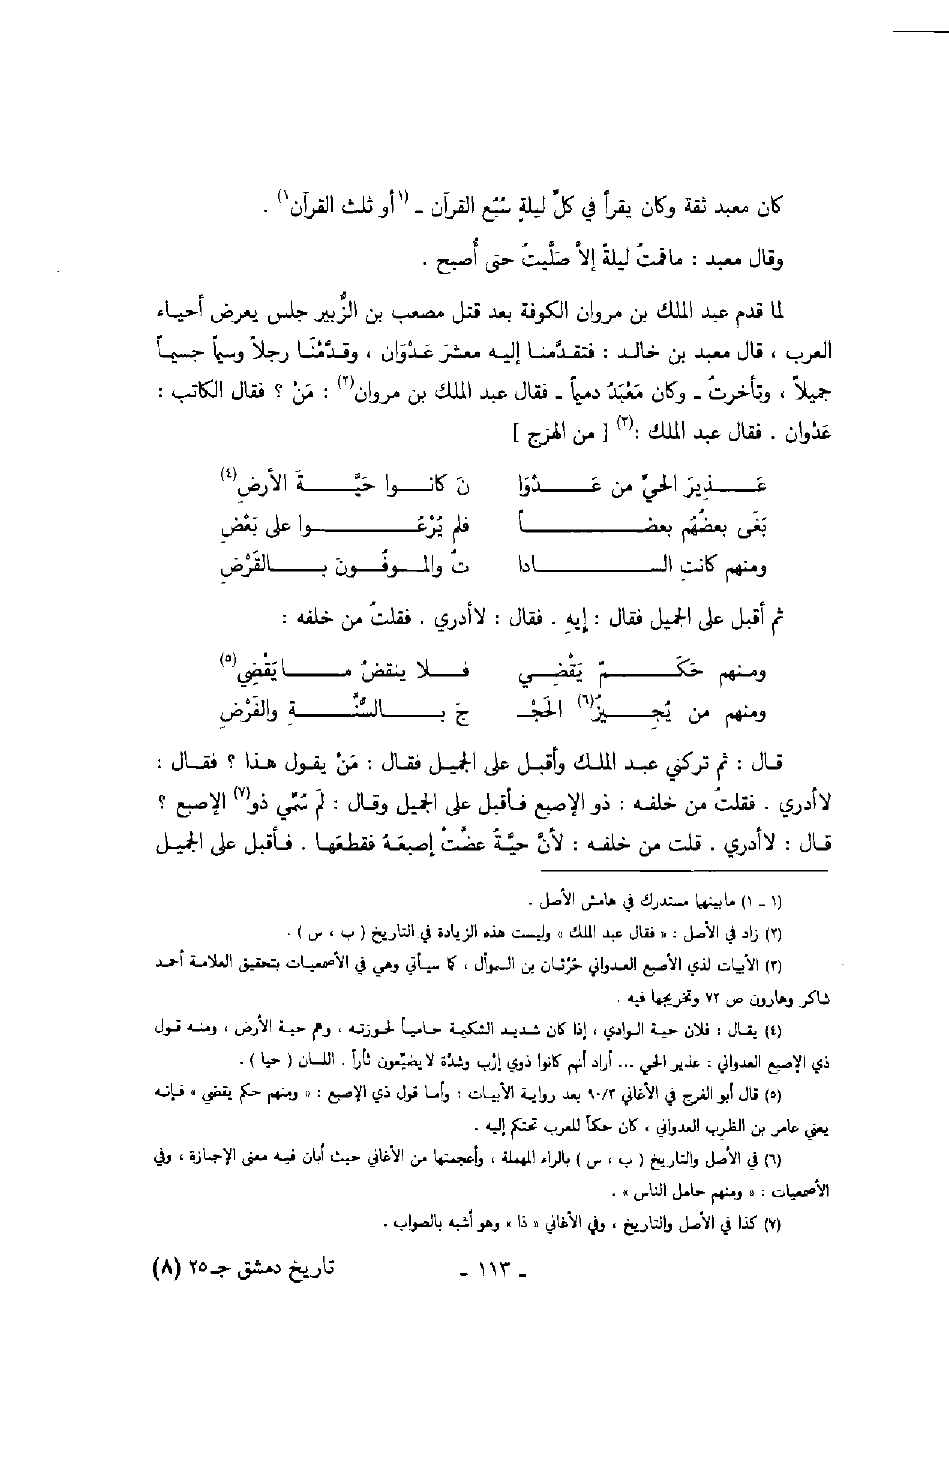 كان معبد ثقة وكان يقرأ في كلِّ ليلةٍ سُبُع القرآن ـ (١أو ثلث القرآن١) .
وقال معبد : مافتُ ليلةً إلاّ صلَّيتُ حتى أُصبح .
لما قدم عبد الملك بن مروان الكوفة بعد قتل مصعب بن الزُّبير جلس يعرض أحياء
العرب ، قال معبد بن خالد : فتقدَّمنا إليه معشرَ عَدْوَان ، وقدَّمْنا رجلاً وسيماً جسيماً
جميلاً ، وتأخرتُ ـ وكان مَعْبَدُ دميماً ـ فقال عبد الملك بن مروان(٢) : مَنْ ؟ فقال الكاتب :
عَدْوان . فقال عبد الملك :(٣) [ من الهزج ]
عَـذيرَ الحيِّ من عَـدْوَا نَ كانـوا حَيَّـةَ الأرضِ(٤)
بَغَى بعضُهُم بعضـاً فلم يُرْعُـوا على بَعْضِ
ومنهم كانتِ السـادا تُ والمـوفُـونَ بـالقَرْضِ
ثم أقبل على الجميل فقال : إيهِ . فقال : لاأدري . فقلتُ من خلفه :
ومنهم حَكَـمٌ يَقْضِـي فـلا ينقضُ مـايَقْضِي(٥)
ومنهم من يُجِـيزُ(٦) الحَجْـ ـجَ بـالسُّنَّـةِ والفَرْضِ
قـال : ثم تركني عبد الملك وأقبل على الجميل فقال : مَنْ يقول هذا ؟ فقال :
لاأدري . فقلتُ من خلفه : ذو الإصبع فأقبل على الجميل وقال : لِمَ سُمِّي ذو(٧) الإصبع ؟
قال : لاأدري . قلت من خلفه : لأنَّ حيَّةً عضَّتْ إصبعَهُ فقطعَها . فأقبل على الجميل
(١ ـ ١) مابينها مستدرك في هامش الأصل .
(٢) زاد في الأصل : « فقال عبد الملك » وليست هذه الزيادة في التاريخ ( ب ، س ) .
(٣) الأبيات لذي الأصبع العدواني حُرْثان بن السموأل ، كما سيأتي وهي في الأصمعيات بتحقيق العلامة أحمد
شاكر وهارون ص ٧٢ وتخريجها فيه .
(٤) يقال : فلان حية الوادي ، إذا كان شديد الشكيمة حامياً لحوزته ، وهم حية الأرض ، ومنه قول
ذي الإصبع العدواني : عذير الحي ... أراد أنهم كانوا ذوي إرْب وشدّة لا يضيّعون ثأراً . اللسان ( حيا ) .
(٥) قال أبو الفرج في الأغاني ٩٠/٣ بعد رواية الأبيات : وأما قول ذي الإصبع : « ومنهم حكم يقضي » فإنه
يعني عامر بن الظرب العدواني ، كان حكماً للعرب تحتكم إليه .
(٦) في الأصل والتاريخ ( ب ، س ) بالراء المهملة ، وأعجمتها من الأغاني حيث أبان فيه معنى الإجازة ، وفي
الأصمعيات : « ومنهم حامل الناس » .
(٧) كذا في الأصل والتاريخ ، وفي الأغاني « ذا » وهو أشبه بالصواب .
ـ ١١٣ ـ تاريخ دمشق جـ٢٥ (٨)